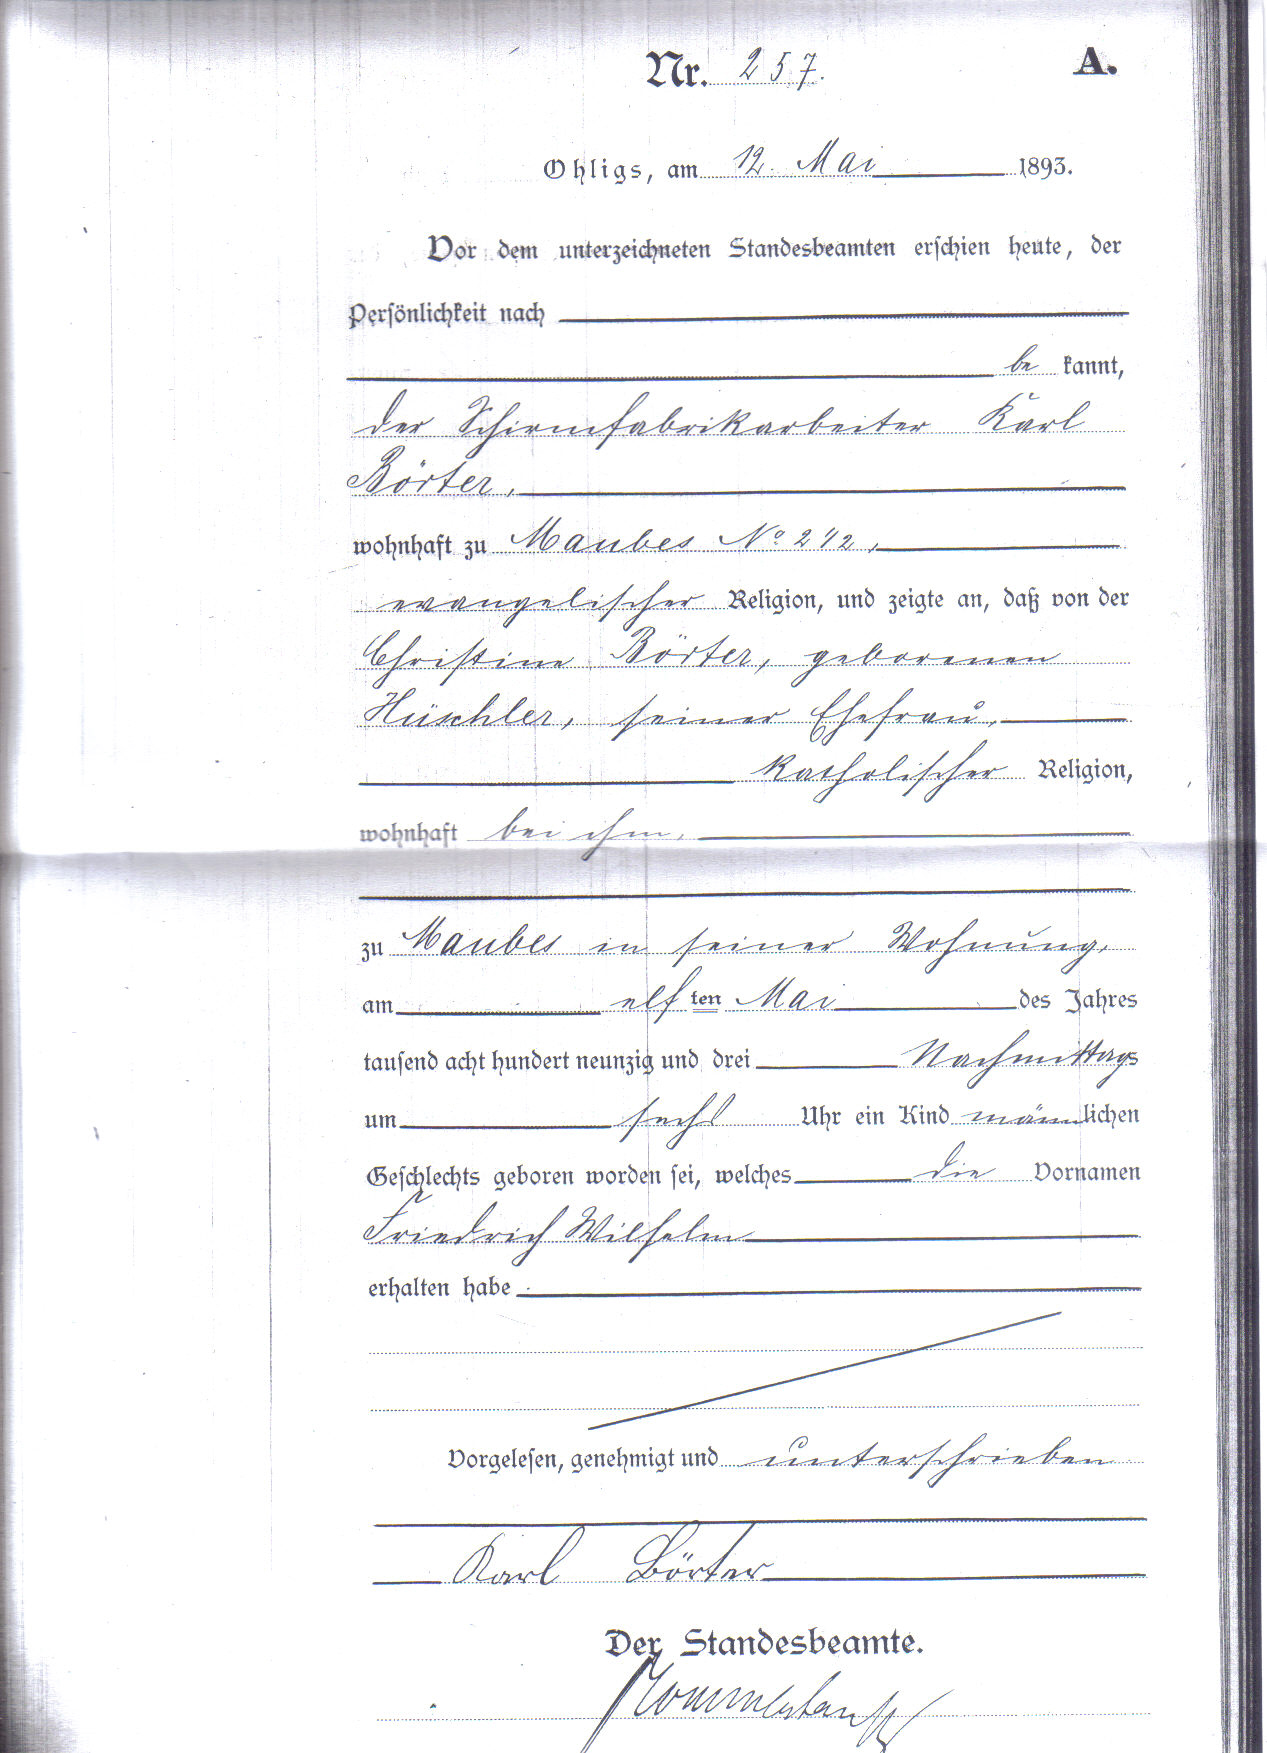 Nr. 257. A.
Ohligs, am 12. Mai 1893.
Vor dem unterzeichneten Standesbeamten erschien heute, der
Persönlichkeit nach
be kannt,
der Schirmfabrikarbeiter Karl
Börter,
wohnhaft zu Maubes No 242,
evangelischer Religion, und zeigte an, daß von der
Christine Börter, geborenen
Hüschler, seiner Ehefrau,
katholischer Religion,
wohnhaft bei ihm,
zu Maubes in seiner Wohnung,
am elf ten Mai des Jahres
tausend acht hundert neunzig und drei Nachmittags
um sechs Uhr ein Kind männlichen
Geschlechts geboren worden sei, welches die Vornamen
Friedrich Wilhelm
erhalten habe
Vorgelesen, genehmigt und unterschrieben
Karl Börter
Der Standesbeamte.